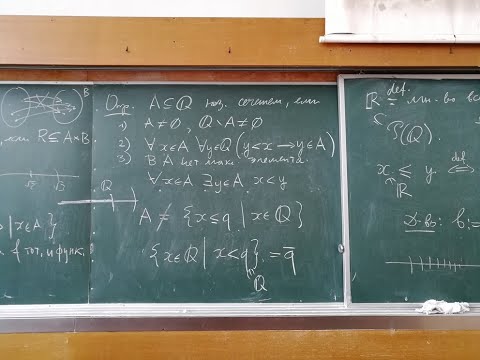 B
если R ⊆ A×B.
√2 √3
Q
| x∈A }
f тот. и функ.
Опр. A ⊆ Q наз. сечением, если
1) A ≠ ∅, Q \ A ≠ ∅
2) ∀ x∈A ∀y∈Q (y<x ⟹ y∈A)
3) В A нет макс элемента.
∀x∈A ∃y∈A x<y
A ≠ {x ≤ q | x∈Q}
{x∈Q | x<q} := q̄
Q
R def = мн-во всех
⊆ P(Q)
x ≤ y def ⟺
R
D-во: b:=